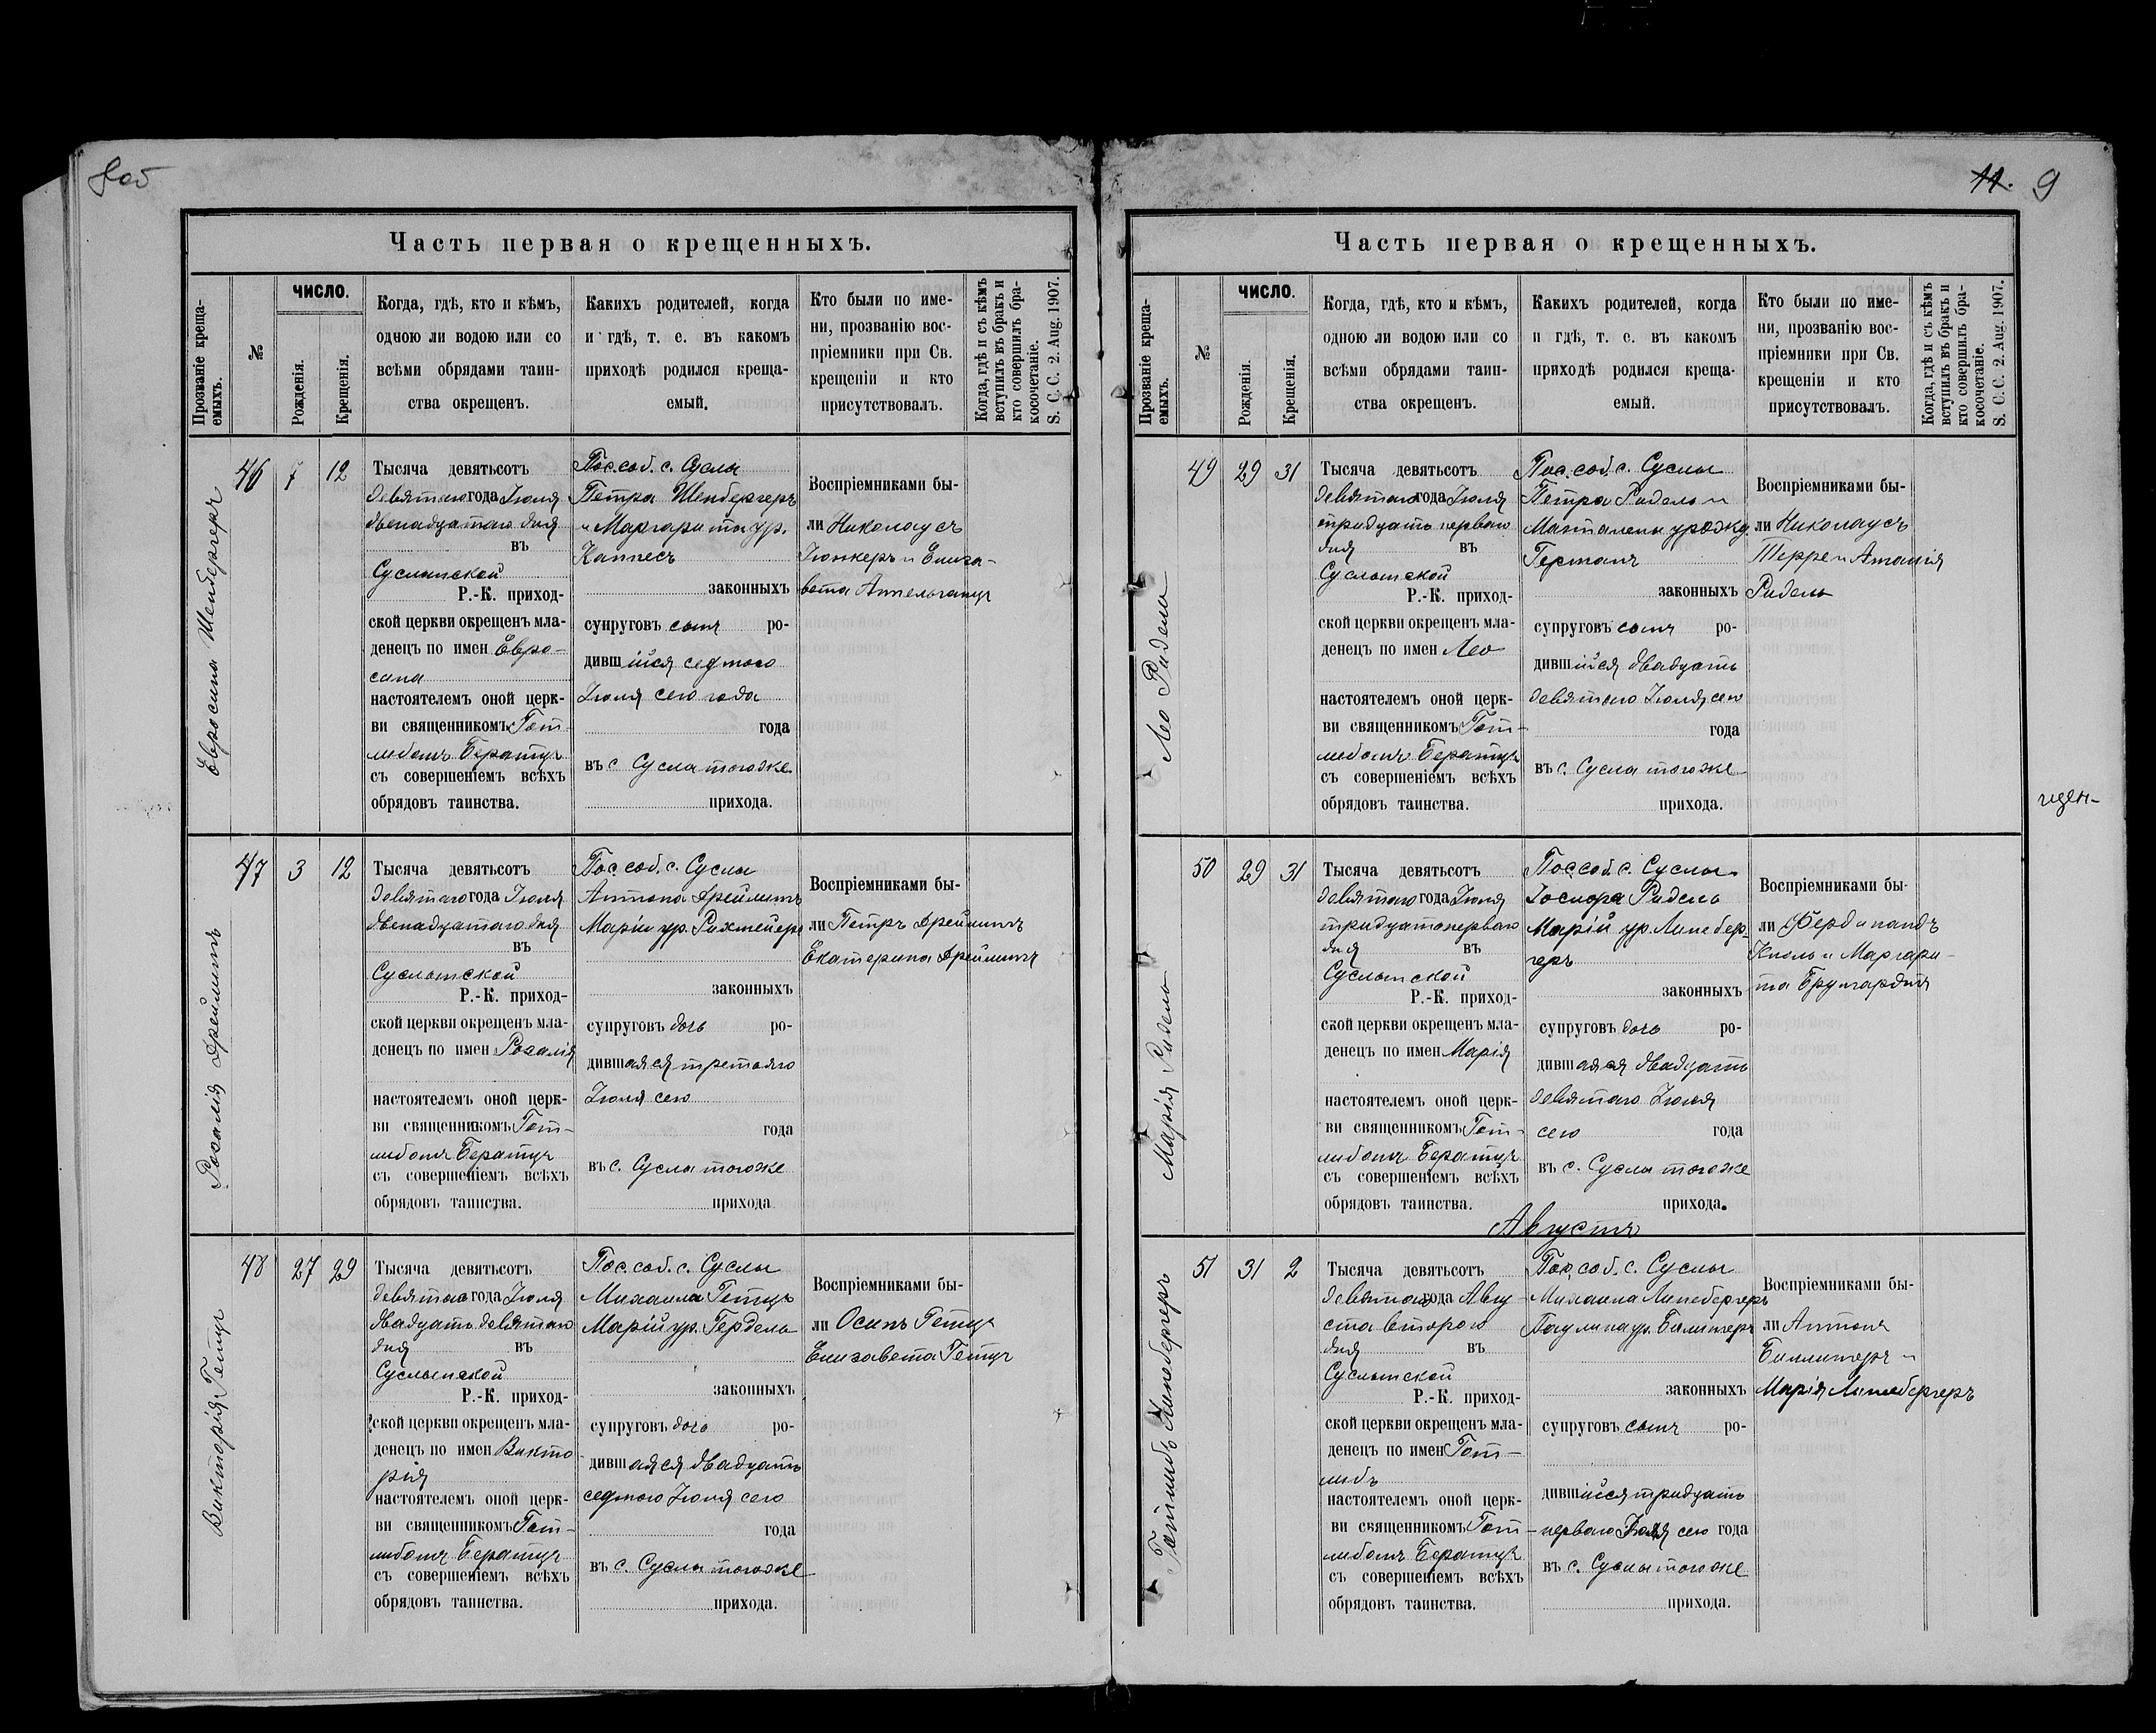 8об
Часть первая о крещенныхъ.
Прозваніе креща-
емыхъ.
№
ЧИСЛО.
Рожденія.
Крещенія.
Когда, гдѣ, кто и кѣмъ,
одною ли водою или со
всѣми обрядами таин-
ства окрещенъ.
Какихъ родителей, когда
и гдѣ, т. е. въ какомъ
приходѣ родился креща-
емый.
Кто были по име-
ни, прозванію вос-
пріемники при Св.
крещеніи и кто
присутствовалъ.
Когда, гдѣ и съ кѣмъ
вступилъ въ бракъ и
кто совершилъ бра-
косочетаніе.
S. C. C. 2. Aug. 1907.
Евросина Шенбергеръ
46
7
12
Тысяча девятьсотъ
девятаго года Іюля
двенадцатаго дня
въ
Суслынской
Р.-К. приход-
ской церкви окрещенъ мла-
денецъ по имен Евро-
сина
настоятелемъ оной церк-
ви священникомъ Гот-
либомъ Бератцъ
съ совершеніемъ всѣхъ
обрядовъ таинства.
Пос. соб. с. Суслы
Петра Шенбергеръ
и Маргариты ур.
Каппесъ
законныхъ
супруговъ сынъ ро-
дившійся седмого
Іюля сего года
года
въ с. Суслы тогоже
прихода.
Воспріемниками бы-
ли Николаусъ
Юнкеръ и Елиза-
вета
Розалія Дрейлингъ
47
3
12
Тысяча девятьсотъ
девятаго года Іюля
двенадцатаго дня
въ
Суслынской
Р.-К. приход-
ской церкви окрещенъ мла-
денецъ по имен Розалія
настоятелемъ оной церк-
ви священникомъ Гот-
либомъ Бератцъ
съ совершеніемъ всѣхъ
обрядовъ таинства.
Пос. соб. с. Суслы
Антона Дрейлингъ
Маріи ур. Рихмейеръ
законныхъ
супруговъ дочь ро-
дившаяся третьяго
Іюля сего
года
въ с. Суслы тогоже
прихода
Воспріемниками бы-
ли Петръ Дрейлингъ
Екатерина Дрейлингъ
Викторія Гетцъ
48
27
29
Тысяча девятьсотъ
девятаго года Іюля
двадцать девятаго
дня въ
Суслынской
Р.-К. приход-
ской церкви окрещенъ мла-
денецъ по имен Викто
рія
настоятелемъ оной церк-
ви священникомъ Гот-
либомъ Бератцъ
съ совершеніемъ всѣхъ
обрядовъ таинства.
Пос. соб. с. Суслы
Михаила Гетцъ
Марій ур. Гердель
законныхъ
супруговъ дочь ро-
дившаяся двадцать
седмого Іюля сего
года
въ с. Суслы тогоже
прихода.
Воспріемниками бы-
ли Осипъ Гетцъ
Елизавета Гетцъ
11. 9
Часть первая о крещенныхъ.
Прозваніе креща-
емыхъ.
№
ЧИСЛО.
Рожденія.
Крещенія.
Когда, гдѣ, кто и кѣмъ,
одною ли водою или со
всѣми обрядами таин-
ства окрещенъ.
Какихъ родителей, когда
и гдѣ, т. е. въ какомъ
приходѣ родился креща-
емый.
Кто были по име-
ни, прозванію вос-
пріемники при Св.
крещеніи и кто
присутствовалъ.
Когда, гдѣ и съ кѣмъ
вступилъ въ бракъ и
кто совершилъ бра-
косочетаніе.
S. C. C. 2. Aug. 1907.
Лео Ридель
49
29
31
Тысяча девятьсотъ
девятаго года Іюля
тридцать перваго
дня въ
Суслынской
Р.-К. приход-
ской церкви окрещенъ мла-
денецъ по имен Лео
настоятелемъ оной церк-
ви священникомъ Гот-
либомъ Бератцъ
съ совершеніемъ всѣхъ
обрядовъ таинства.
Пос. соб. с. Суслы
Петра Ридель и
Магталены урожд.
Германъ
законныхъ
супруговъ сынъ ро-
дившійся двадцать
девятаго Іюля сего
года
въ с. Суслы тогоже
прихода.
Воспріемниками бы-
ли Николаусъ
Терре и
Ридель
Марія Ридель
50
29
31
Тысяча девятьсотъ
девятаго года Іюля
тридцатоперваго
дня въ
Суслынской
Р.-К. приход-
ской церкви окрещенъ мла-
денецъ по имен Марія
настоятелемъ оной церк-
ви священникомъ Гот-
либомъ Бератцъ
съ совершеніемъ всѣхъ
обрядовъ таинства.
Пос. соб. с. Суслы
Іосифа Ридель
Марій ур. Линебер-
геръ
законныхъ
супруговъ дочь ро-
дившаяся двадцать
девятаго Іюля
сего года
въ с. Суслы тогоже
прихода.
Воспріемниками бы-
ли Фердинандъ
Кноль и Маргари-
та Брунгардтъ
Августъ
Готлибъ Линебергеръ
51
31
2
Тысяча девятьсотъ
девятаго года Авгу-
ста второго
дня въ
Суслынской
Р.-К. приход-
ской церкви окрещенъ мла-
денецъ по имен Гот-
либъ
настоятелемъ оной церк-
ви священникомъ Гот-
либомъ Бератцъ
съ совершеніемъ всѣхъ
обрядовъ таинства.
Пос. соб. с. Суслы
Михаила Линебергеръ
Паулина ур. Биллингеръ
законныхъ
супруговъ сынъ ро-
дившійся тридцать
перваго Іюля сего года
въ с. Суслы тогоже
прихода.
Воспріемниками бы-
ли Антонъ
Биллингеръ и
Марія Линебергеръ